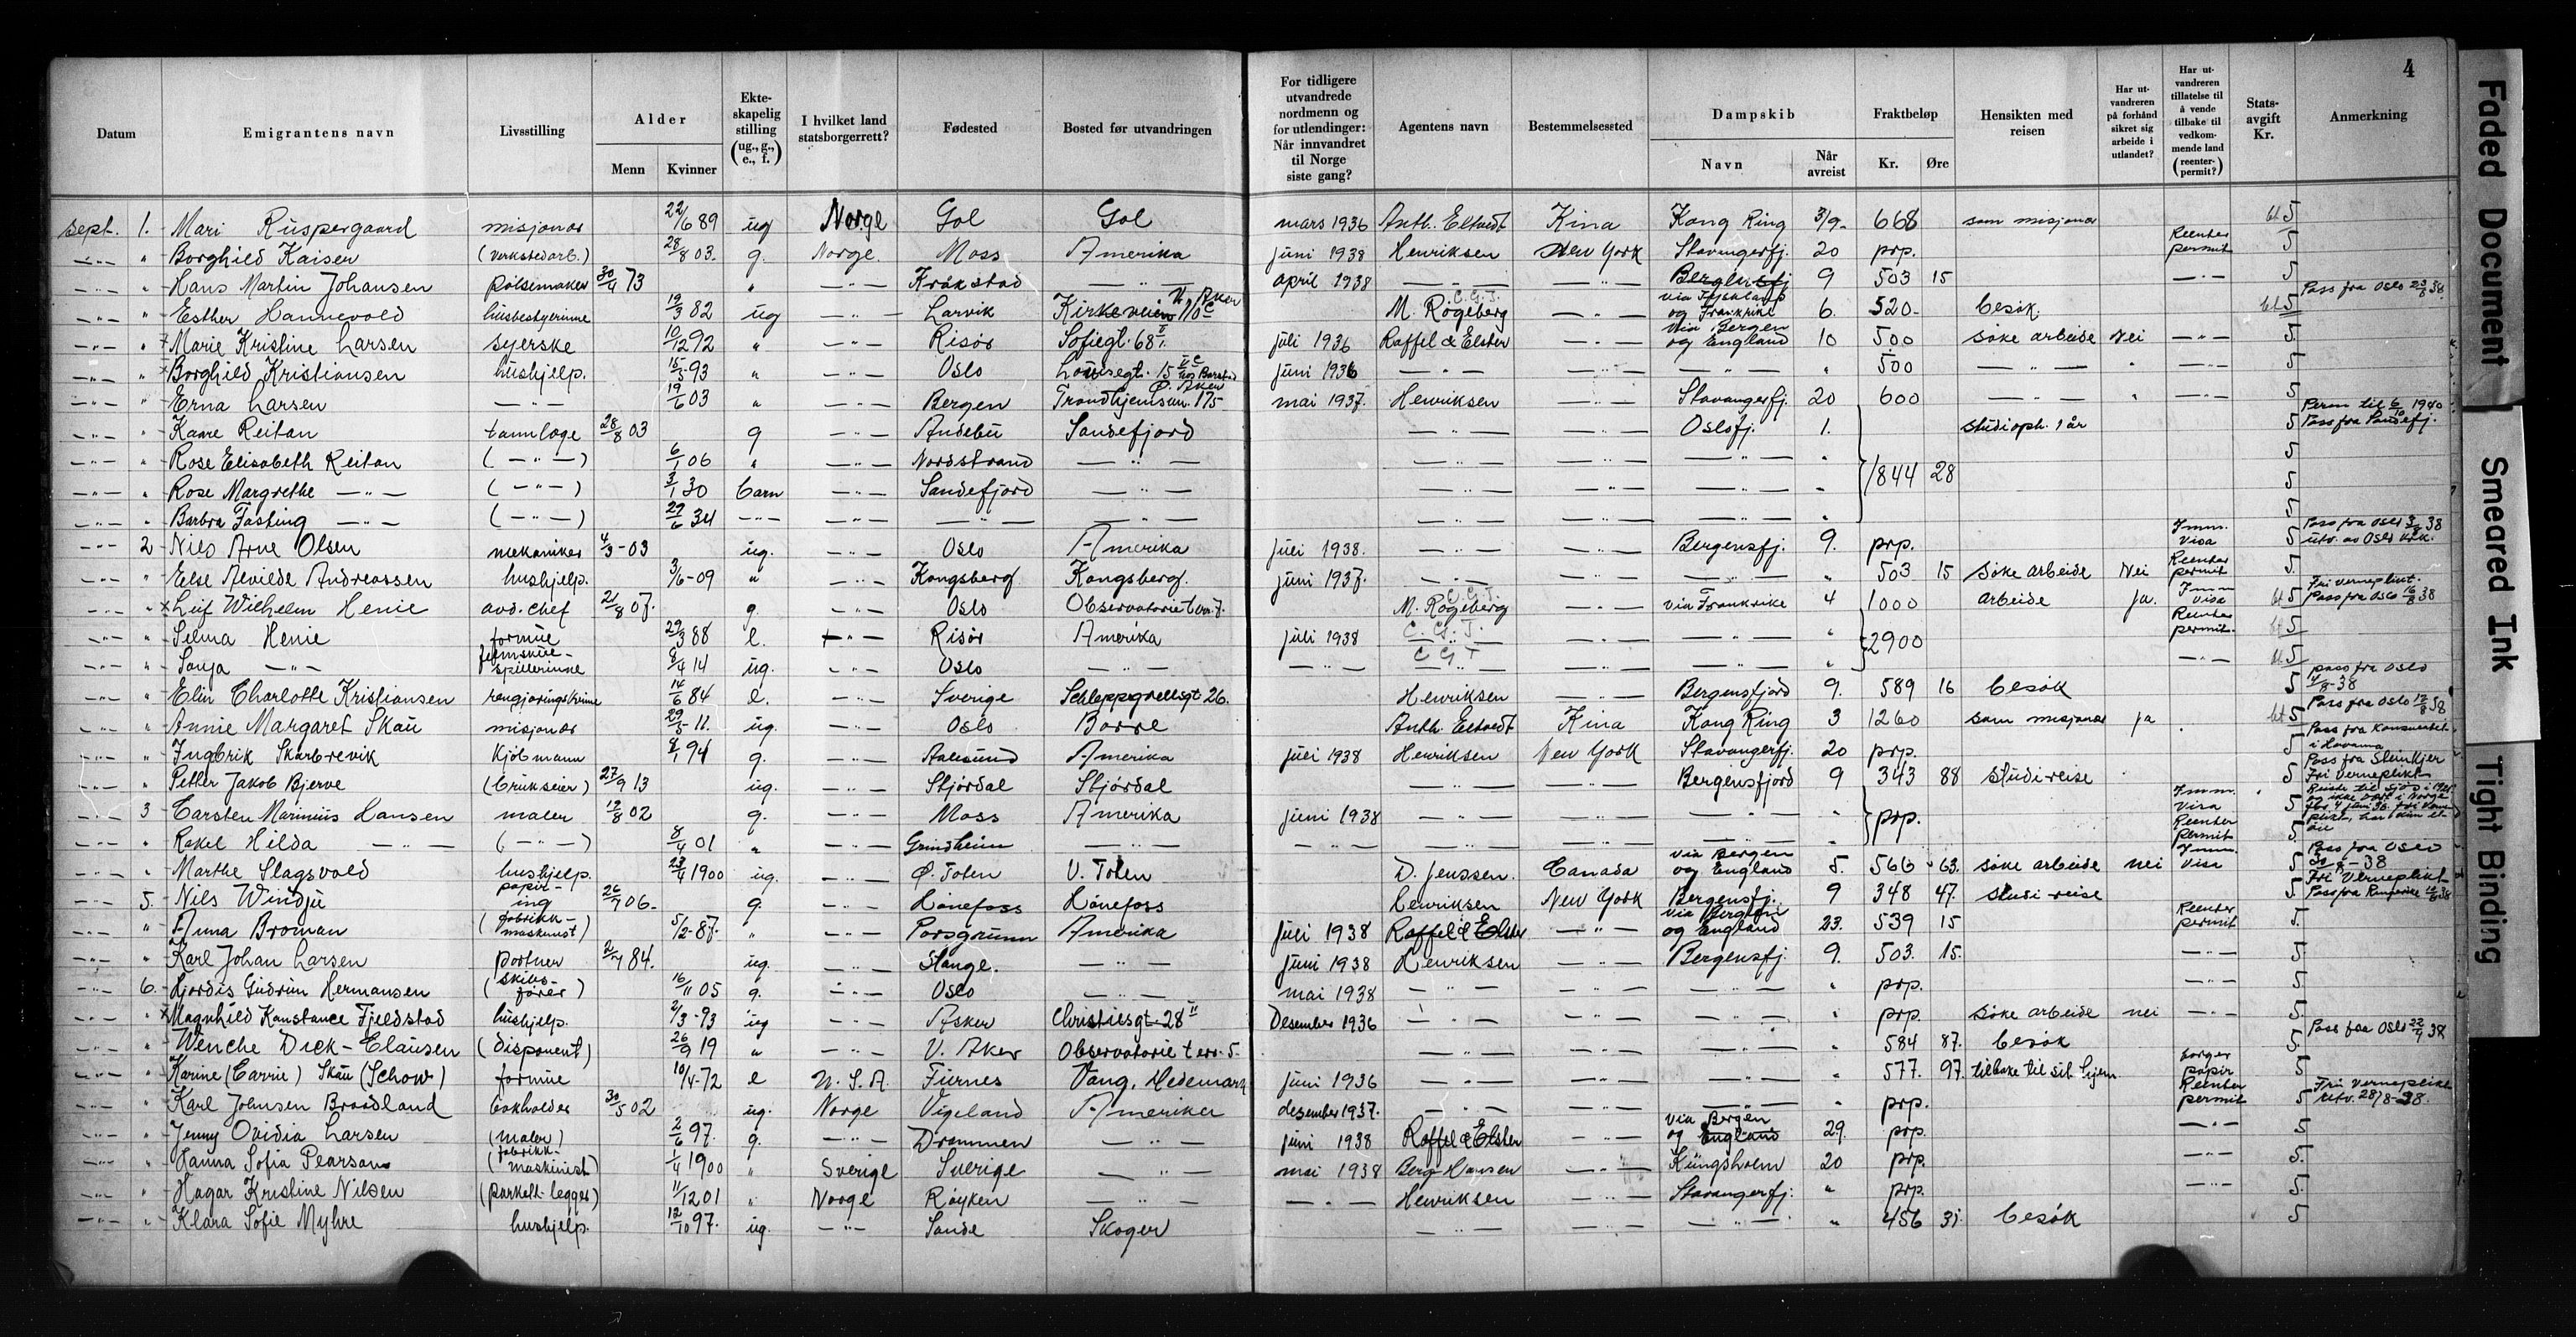 4
Datum | Emigrantens navn | Livsstilling | Alder Menn | Kvinner | Ekte-skapelig stilling (ug., g., e., f.) | I hvilket land statsborgerrett? | Fødested | Bosted før utvandringen | For tidligere utvandrede nordmenn og for utlendinger: Når innvandret til Norge siste gang? | Agentens navn | Bestemmelsessted | Dampskib Navn | Når avreist | Fraktbeløp Kr. | Øre | Hensikten med reisen | Har ut-vandreren på forhånd sikret sig arbeide i utlandet? | Har ut-vandreren tillatelse til å vende tilbake til vedkom-mende land (reenter-permit?) | Stats-avgift Kr. | Anmerkning
sept. 1. Mari Ruspergaard misjonær 22/6 89 ug Norge Gol Gol mars 1936 Anth. Eltvedt Kina Kong Ring 3/9- 668 som misjonær bt 5
—"— " Borghild Kaiser (verkstedarb.) 28/8 03. g. Norge. Moss Amerika juni 1938 Henriksen New York Stavangerfj. 20 prp. Reenter permit 5
—"— " Hans Martin Johansen pølsemaker 30/4 73 " —"— Kråkstad —"— april 1938 —"— —"— Bergensfj 9 503 15 —"— 5
—"— " Esther Hannevold husbestyerinne 19/3 82 ug —"— Larvik Kirkeveien 110 C V. Aker M. Rogeberg C.G.T. —"— via Tyskland og Frankrike 6. 520- besøk. bt 5 Pass fra Oslo 23/8 38.
—"— " x Marie Kristine Larsen syerske 10/12 92 " —"— Risør Sofiegt. 68 I. juli 1936 Raffel & Elster —"— via Bergen og England 10 500 søke arbeide Nei —"— 5.
—"— " x Borghild Kristiansen hushjelp. 15/5 93 " —"— Oslo Louisegt. 15 II c hos Barstad juni 1936 —"— —"— —"— " 500 —"— " —"— 5
—"— " Erna Larsen —"— 19/6 03 " —"— Bergen Trondhjemsvn. 175 Ø. Aker mai 1937. Henriksen —"— Stavangerfj. 20 600 —"— " —"— 5
—"— " Kaare Reitan tannlæge 28/8 03 g —"— Andebu Sandefjord —"— —"— Oslofj. 1. studieoph. 1 år 5 Perm til 6/10 1940 Pass fra Sandefj.
—"— " Rose Elisabeth Reitan (—"—) 6/1 06 " —"— Nordstrand —"— —"— —"— —"— " 1844 28 5
—"— " Rose Margrethe —"— (—"—) 3/1 30 barn —"— Sandefjord —"— —"— —"— —"— " 5
—"— " Barbra Fasting —"— (—"—) 29/6 34 —"— —"— —"— —"— —"— —"— —"— " 5
—"— 2 Nils Arne Olsen mekaniker 4/3-03 ug. —"— Oslo Amerika Juli 1938. —"— —"— Bergensfj. 9. prp. Imm. visa 5 Pass fra Oslo 3/8 38 utv. av Oslo krk.
—"— " Else Alvilde Andreassen hushjelp. 3/6-09 " —"— Kongsberg. Kongsberg. juni 1937. —"— —"— —"— " 503 15 søke arbeide Nei Reenter permit 5.
—"— " x Leif Wilhelm Henie avd. chef 21/8 07. g. —"— Oslo Observatorie t.rr. 7. M. Rogeberg C.G.T. —"— via Frankrike 4 1000 arbeide ja. Imm visa bt 5 Fri Verneplikt. Pass fra Oslo 16/8 38
—"— " Selma Henie formue 29/3 88 e. —"— Risør Amerika juli 1938 C.G.T. —"— —"— —"— " 2900 Reenter permit. bt 5
—"— " Sonja —"— filmskue-spillerinne 8/4 14 ug. —"— Oslo —"— —"— C G T —"— —"— —"— " —"— bt. 5
—"— " Elin Charlotte Kristiansen rengjøringskvinne 14/6 84 e. —"— Sverige Schleppgrellsgt 26. Henriksen —"— Bergensfjord 9. 589 16 besøk 5 pass fra Oslo 14/8-38
—"— " Annie Margaret Skau misjonær 29/5-11. ug. —"— Oslo Borre Anth. Eltvedt Kina Kong Ring 3 1260 som misjonær ja bt 5 Pass fra Oslo 12/8 38
—"— " Ingbrik Skarbrevik kjøbmann 8/1 94 g. —"— Aalesund Amerika Juli 1938 Henriksen New York Stavangerfj. 20 prp. 5 Pass fra Konsulatet i Havanna
—"— " Petter Jakob Bjerve (brukseier) 27/9 13 ug. —"— Stjørdal Stjørdal —"— —"— Bergensfjord 9 343 88 studiereise 5 Pass fra Steinkjer Fri Verneplikt
—"— 3 Carsten Marinius Hansen maler 12/8 02 g. —"— Moss Amerika juni 1938 —"— —"— —"— " prp. Imm. Visa 5 Reiste til sjøs i 1921 og ikke vært i Norge før 4 juni 38. fri verneplikt,
—"— " Rakel Hilda —"— (—"—) 8/4 01 " —"— Grindheim —"— —"— —"— —"— —"— " Reenter permit 5.
—"— " Marthe Slagsvold hushjelp. 23/4 1900 ug. —"— Ø. Toten V. Toten D. Jenssen. Canada via Bergen og England 5. 566 63. søke arbeide nei Imm. Visa 5 Pass fra Oslo 30/6-38
—"— 5. Nils Windju papir-ing 26/7 06- g. —"— Hønefoss Hønefoss Henriksen New York Bergensfj. 9 348 47. studiereise 5 Fri Verneplikt Pass fra Ringerike 12/8 38
—"— " Anna Broman (fabrikk-maskinist) 5/2-87. " —"— Porsgrunn Amerika juli 1938 Raffel & Elster —"— via Bergen og England 23. 539 15 Reenter permit 5.
—"— " Karl Johan Larsen portner 2/7 84. ug. —"— Stange. —"— juni 1938 Henriksen —"— Bergensfj. 9. 503. 15. —"— 5
—"— 6. Hjørdis Gudrun Hermansen (skibs-fører) 16/11 05 g. —"— Oslo —"— mai 1938 —"— —"— —"— " prp. —"— 5
—"— " x Magnhild Konstance Fjeldstad hushjelp. 2/3-93 ug —"— Asker Christiesgt. 28 II Desember 1936 —"— —"— —"— " prp. søke arbeide nei —"— 5.
—"— " Wenche Dick-Clausen (disponent) 26/9 19 " —"— V. Aker Observatorie terr. 5. —"— —"— —"— " 584 87. besøk 5. Pass fra Oslo 22/7 38
—"— " Karine (Carrie) Skau (Schow) formue 10/4-72 e U.S.A. Furnes Vang, Hedemark juni 1936 —"— —"— —"— " 577. 97. tilbake til sit hjem borger papir 5
—"— " Karl Johnsen Braadland bokholder 30/5 02 ug. Norge Vigeland Amerika desember 1937. —"— —"— —"— " prp. Reenter permit 5 Fri Verneplikt utv. 28/8-38.
—"— " Jenny Ovidia Larsen (maler) 2/6 97. g. —"— Drammen —"— juni 1938 Raffel & Elster —"— via Bergen og England 29. prp. —"— 5
—"— " Hanna Sofia Pearson (fabrikk-maskinist) 1/4 1900 " Sverige Sverige —"— mai 1938 Berg-Hansen —"— Kungsholm 20 prp. —"— 5.
—"— " Hagar Kristine Nilsen (parkett-legger) 11/12 01 " Norge Røyken —"— —"— Henriksen —"— Stavangerfj. " prp. —"— 5.
—"— " Klara Sofie Myhre hushjelp. 12/10 97. ug. —"— Sande Skoger —"— —"— —"— " 456 31. besøk 5
Faded Document
Smeared Ink
Tight Binding